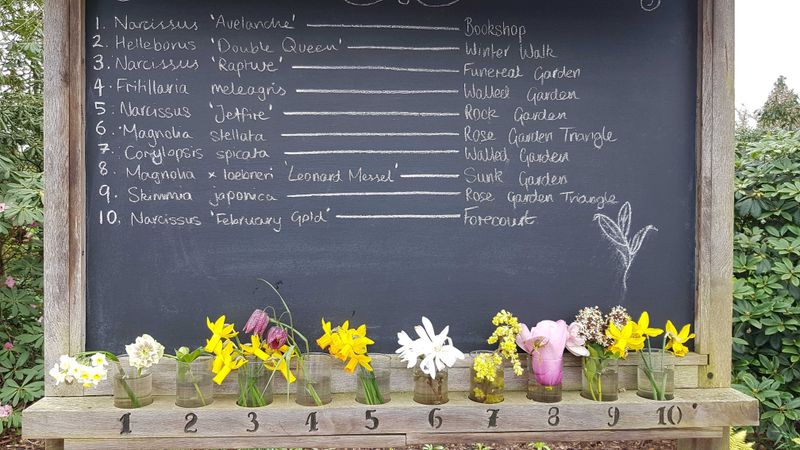 1. Narcissus 'Avelanche' Bookshop
2. Helleborus 'Double Queen' Winter Walk
3. Narcissus 'Rapture' Funereal Garden
4. Fritillaria meleagris Walled Garden
5. Narcissus 'Jetfire' Rock Garden
6. Magnolia stellata Rose Garden Triangle
7. Corylopsis spicata Walled Garden
8. Magnolia x loebneri 'Leonard Messel' Sunk Garden
9. Skimmia japonica Rose Garden Triangle
10. Narcissus 'February Gold' Forecourt
1 2 3 4 5 6 7 8 9 10